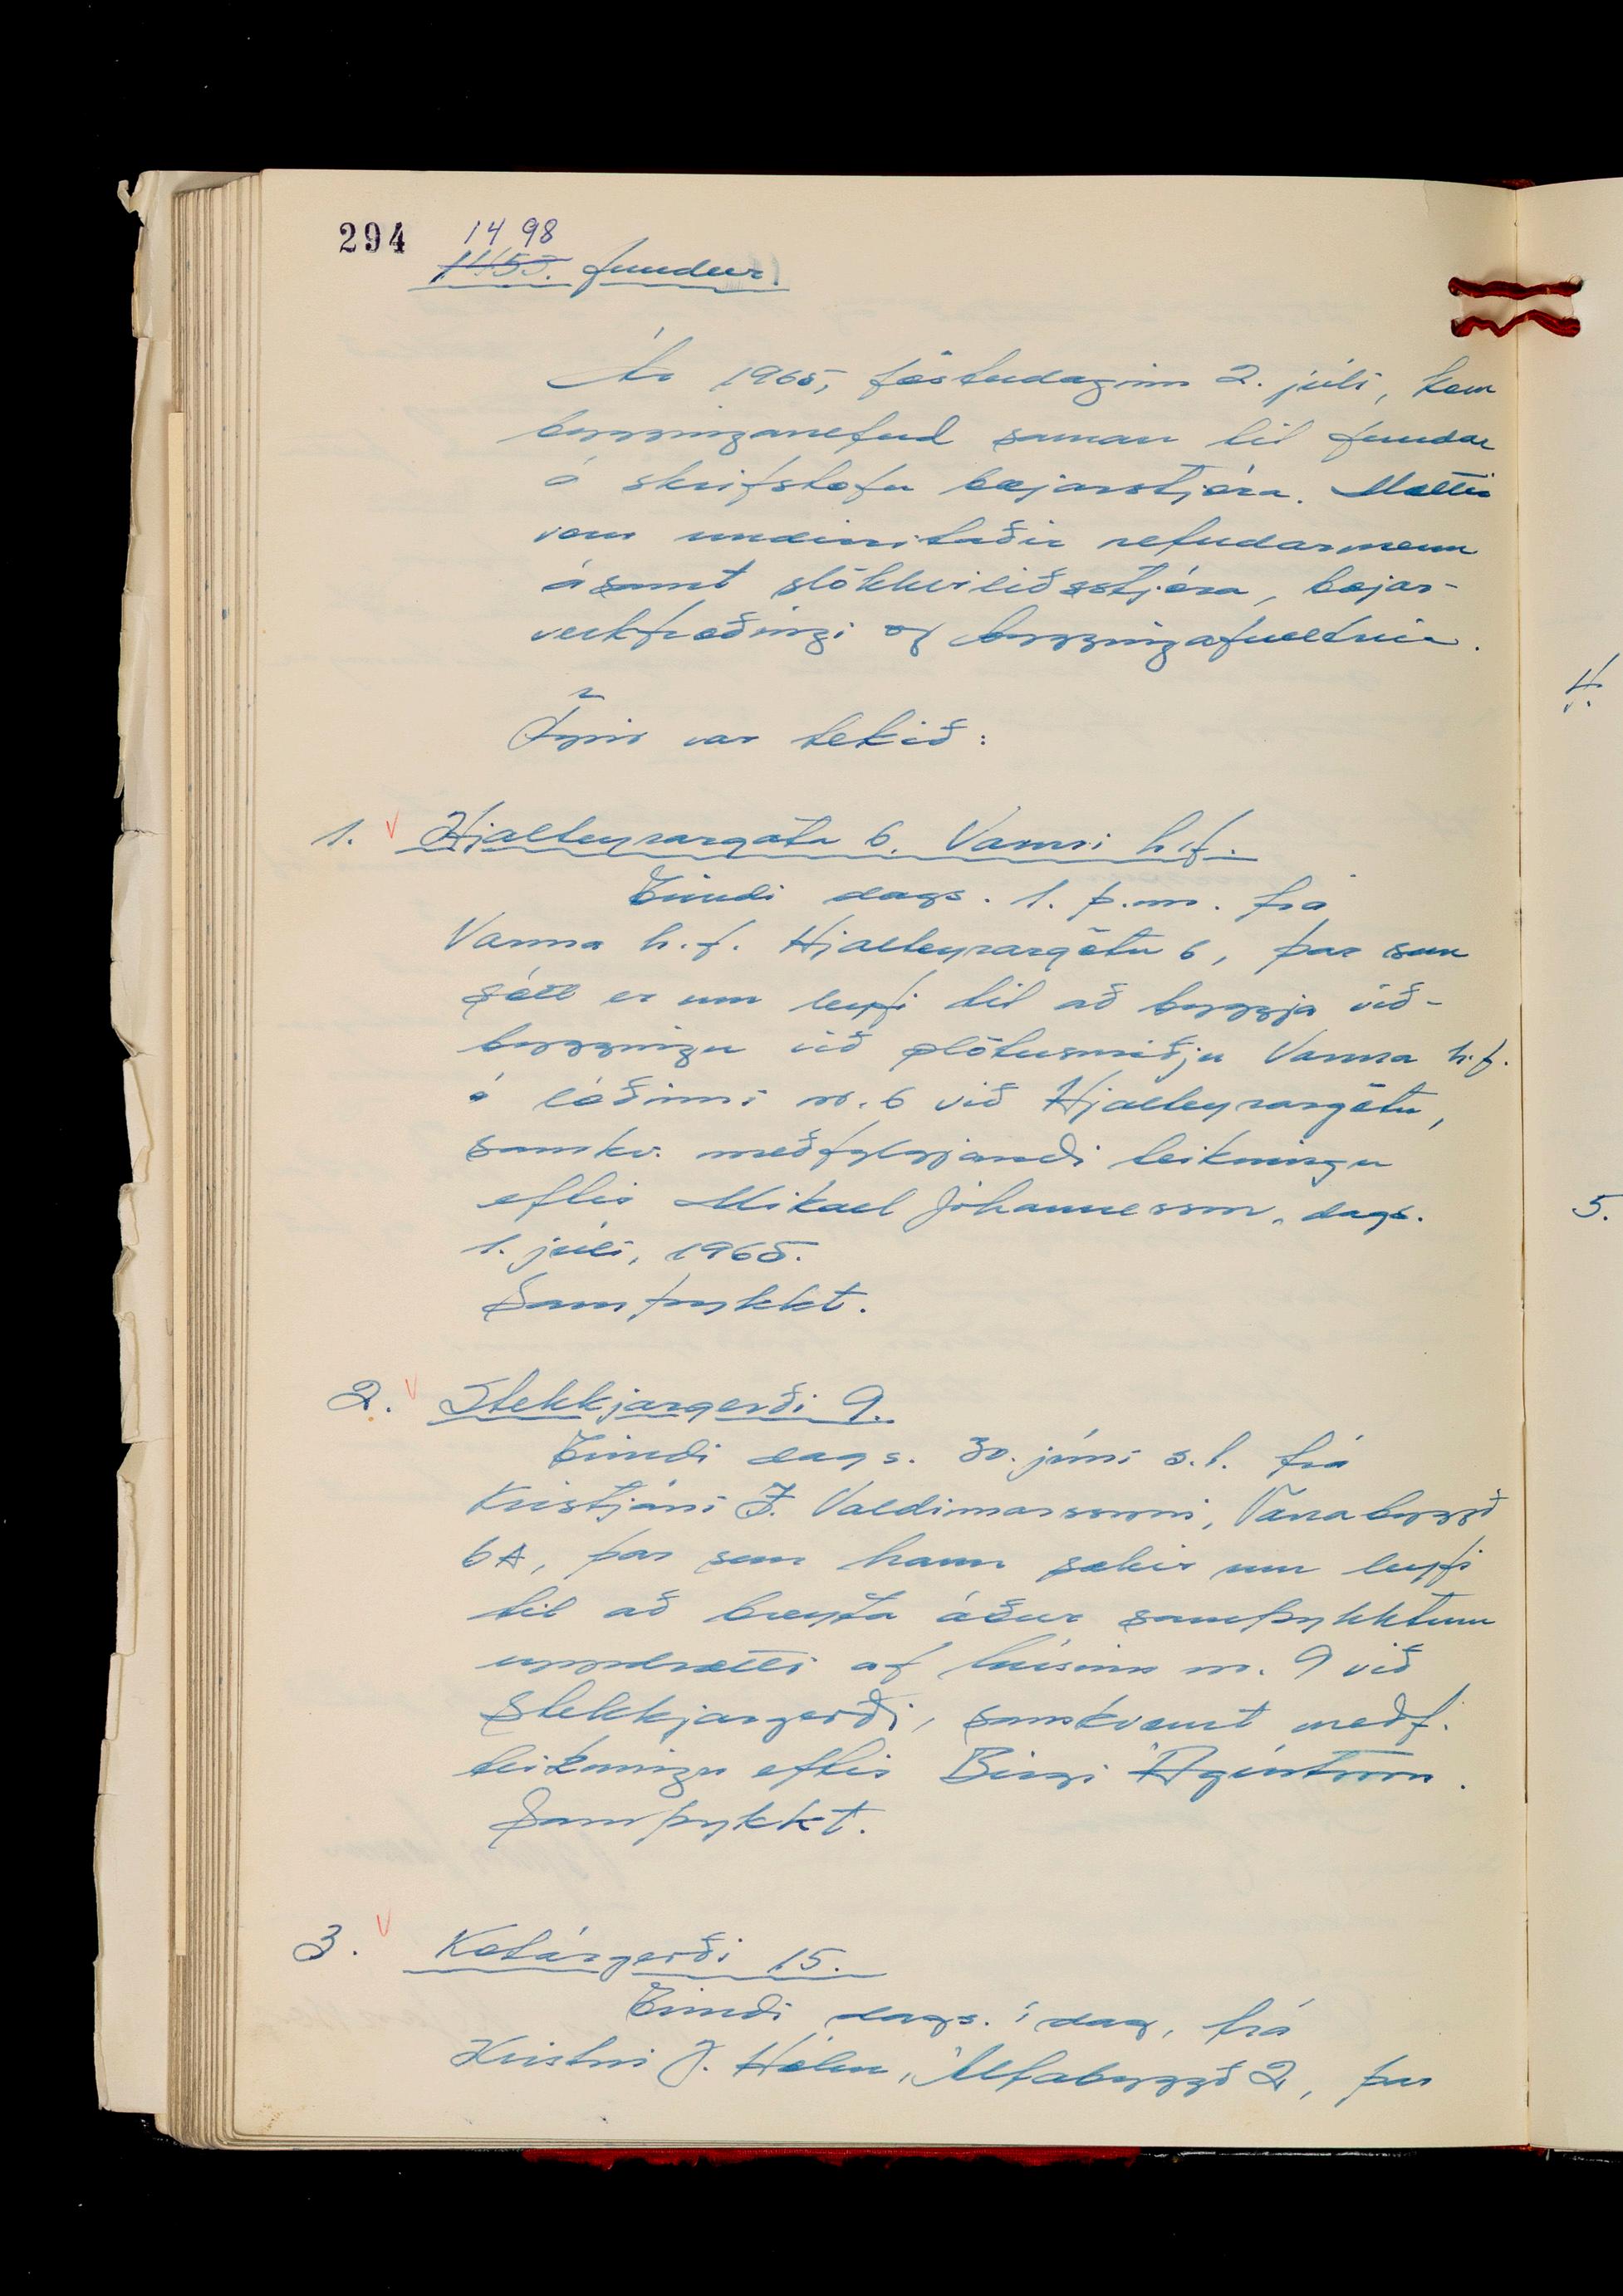 294
1498
1455. fundur.
Ár 1965, föstudaginn 2. júlí, kom
bygginganefnd saman til fundar
á skrifstofu bæjarstjóra. Mættir
voru undirritaðir nefndarmenn
ásamt slökkviliðsstjóra, bæjar-
verkfræðingi og byggingafulltrúa.
Fyrir var tekið:
1. v Hjalteyrargata 6. Vanni h.f.
Erindi dags. 1. þ.m. frá
Vanna h.f. Hjalteyrargötu 6, þar sem
sótt er um leyfi til að byggja við-
byggingu við plötusmiðju Vanna h.f.
á lóðinni nr. 6 við Hjalteyrargötu,
samkv. meðfylgjandi teikningu
eftir Mikael Jóhannesson, dags.
1. júlí, 1965.
Samþykkt.
2. v Stekkjargerði 9.
Erindi dags. 30. júní s.l. frá
Kristjáni J. Valdimarssyni, Vanabyggð
6A, þar sem hann sækir um leyfi
til að breyta áður samþykktum
uppdrætti af húsinu nr. 9 við
Stekkjargerði, samkvæmt meðf.
teikningu eftir Birgi Ágústsson.
Samþykkt.
3. v Kotárgerði 15.
Erindi dags. í dag, frá
Kristni J. Hólm, Álfabyggð 2, þar
4.
5.